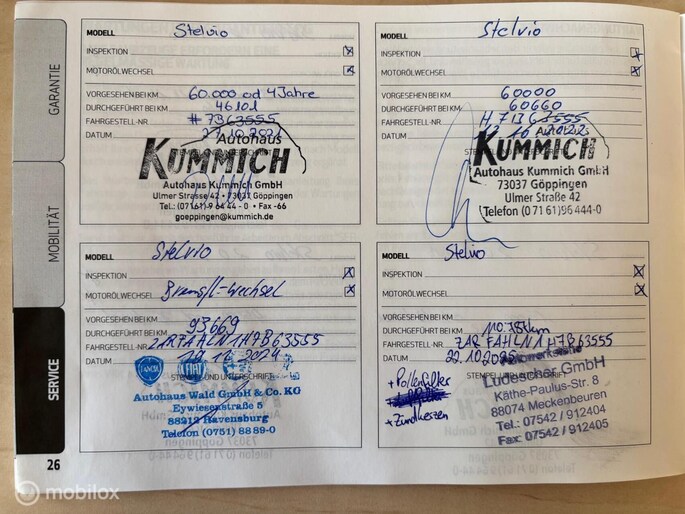 GARANTIE
MOBILITÄT
SERVICE
26
MODELL Stelvio
INSPEKTION x
MOTORÖLWECHSEL x
VORGESEHEN BEI KM 60.000 od 4 Jahre
DURCHGEFÜHRT BEI KM 46101
FAHRGESTELL-NR. #7B63555
DATUM 27.10.2021
Autohaus
KUMMICH
Autohaus Kummich GmbH
Ulmer Strasse 42 • 73037 Göppingen
Tel.: (07161) 9 64 44 - 0 • Fax -66
goeppingen@kummich.de
MODELL Stelvio
INSPEKTION x
MOTORÖLWECHSEL x
VORGESEHEN BEI KM 60000
DURCHGEFÜHRT BEI KM 60660
FAHRGESTELL-NR. H7B63555
DATUM
Autohaus
KUMMICH
Autohaus Kummich GmbH
73037 Göppingen
Ulmer Straße 42
Telefon (0 71 61) 96 444-0
MODELL Stelvio
INSPEKTION x
MOTORÖLWECHSEL Bremsfl.-wechsel x
VORGESEHEN BEI KM
DURCHGEFÜHRT BEI KM 93669
FAHRGESTELL-NR. ZARFAHLN1H7B63555
DATUM 2024
LANCIA FIAT
STEMPEL UND UNTERSCHRIFT
Autohaus Wald GmbH & Co. KG
Eywiesenstraße 5
88212 Ravensburg
Telefon (0751) 88 89-0
MODELL Stelvio
INSPEKTION x
MOTORÖLWECHSEL x
VORGESEHEN BEI KM
DURCHGEFÜHRT BEI KM
FAHRGESTELL-NR. ZARFAHLN1H7B63555
DATUM 22.10.2025
STEMPEL UND UNTERSCHRIFT
+ Pollenfilter
+ Zündkerzen
Ludescher GmbH
Käthe-Paulus-Str. 8
88074 Meckenbeuren
Tel.: 07542 / 912404
Fax: 07542 / 912405
© mobilox